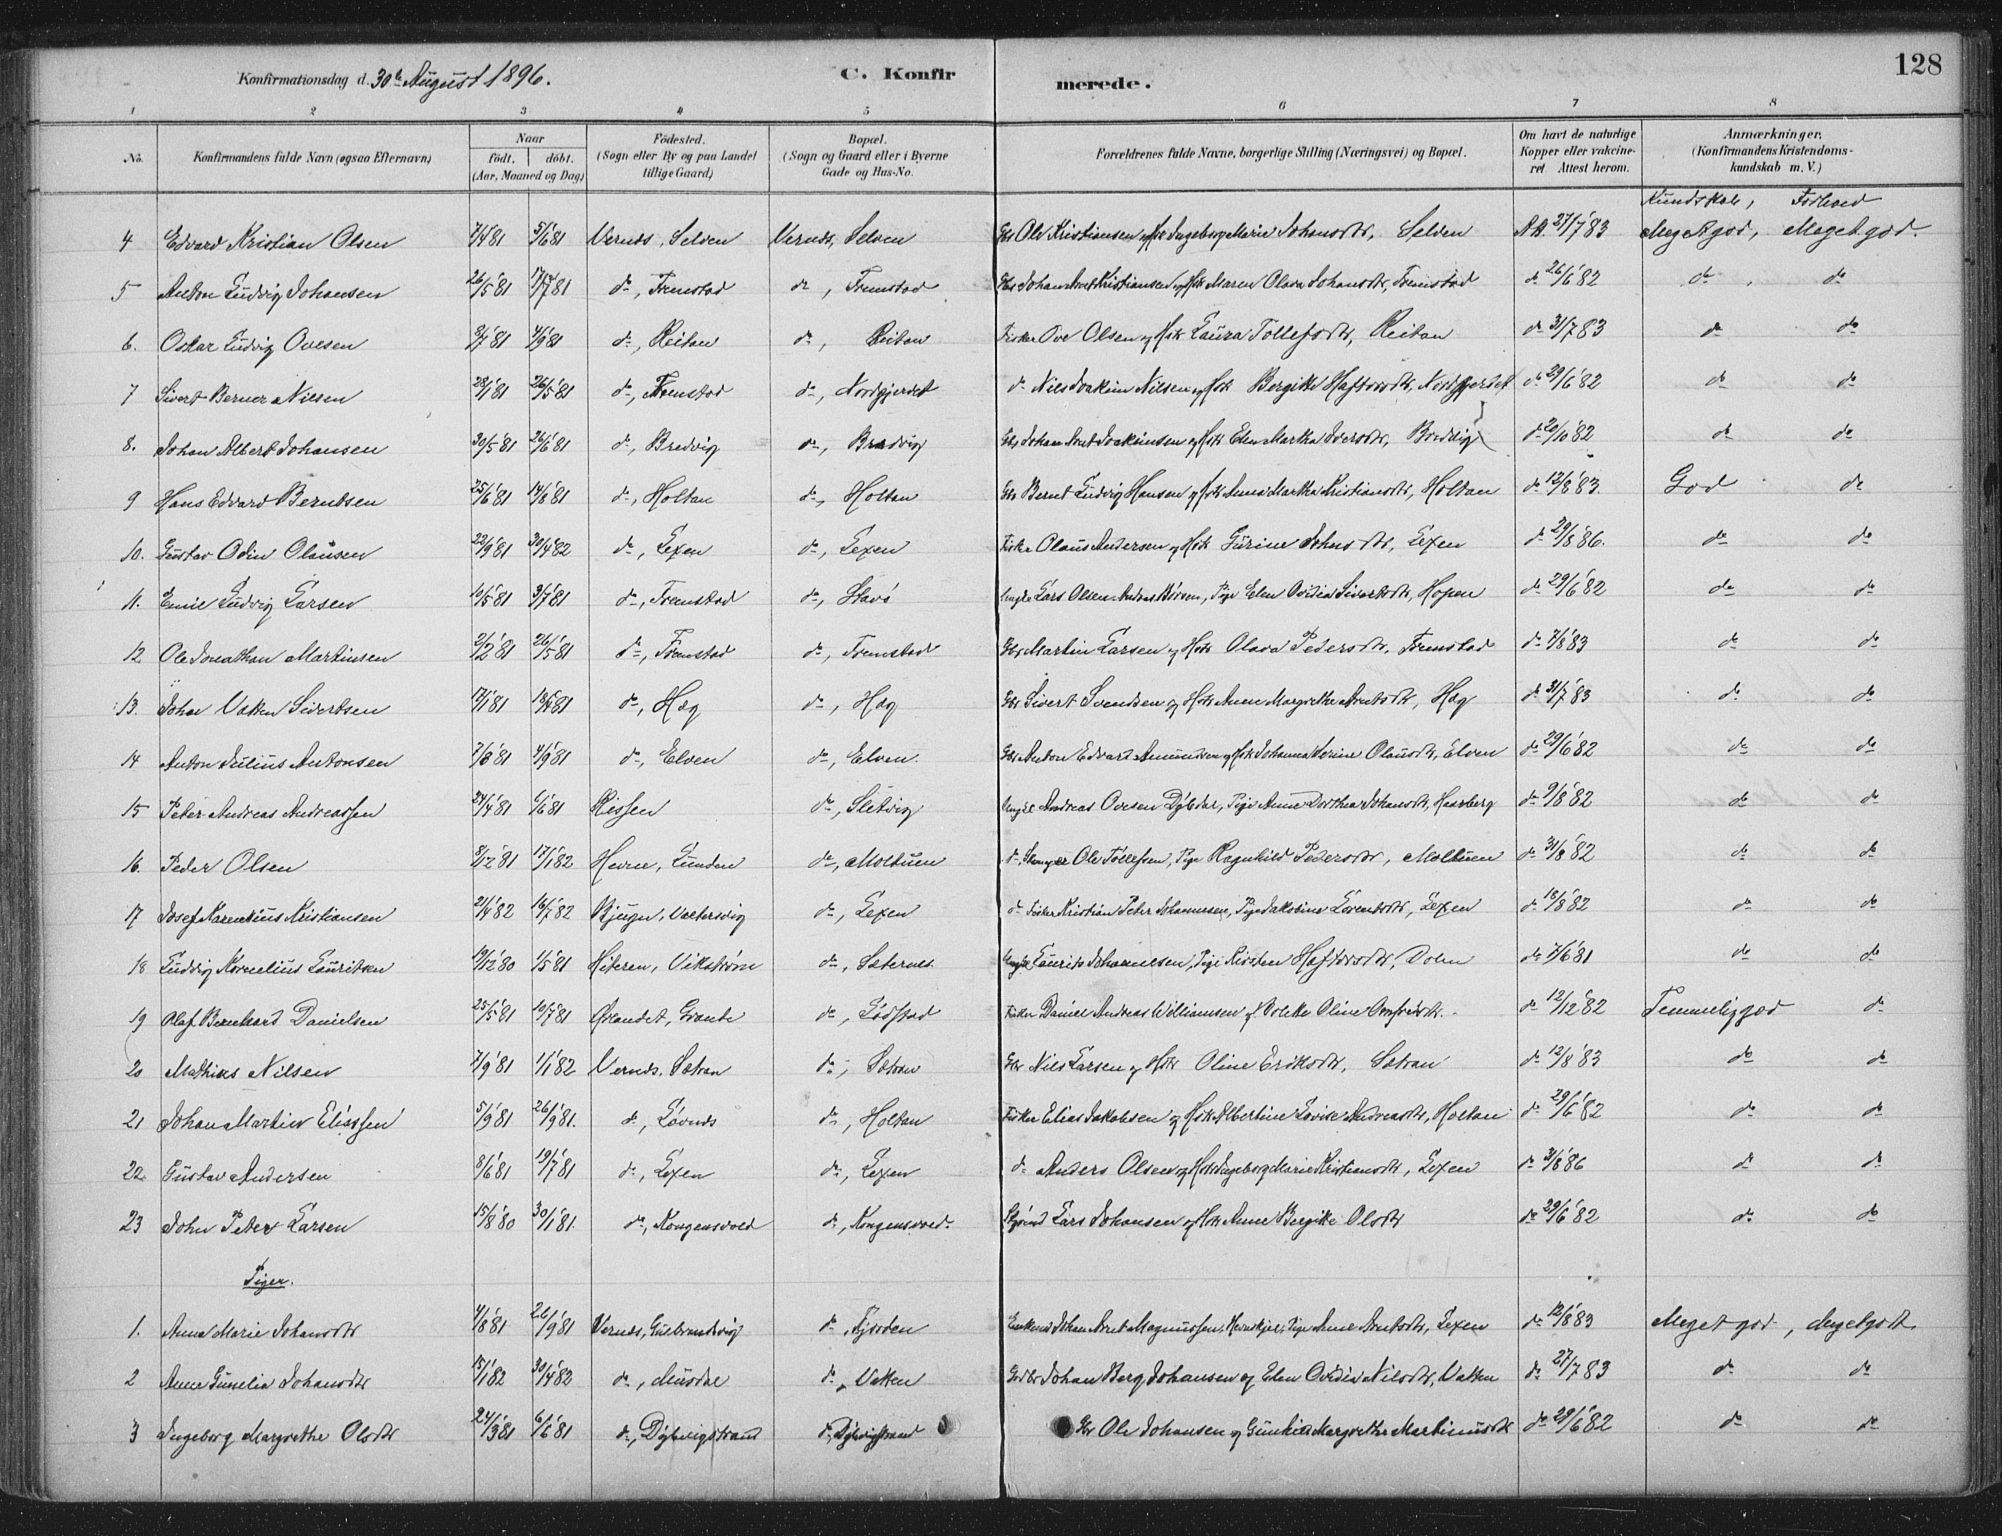 128
Konfirmationsdag d. 30te August 1896. C. Konfirmerede.
1 2 3 4 5 6 7 8
No. Konfirmandens fulde Navn (ogsaa Efternavn) Naar født. døbt. (Aar, Maaned og Dag) Fødested. (Sogn eller By og paa Landet tillige Gaard) Bopæl. (Sogn og Gaard eller i Byerne Gade og Hus-No. Forældrenes fulde Navne, borgerlige Stilling (Næringsvei) og Bopæl. Om havt de naturlige Kopper eller vakcineret Attest herom. Anmærkninger. (Konfirmandens Kristendomskundskab m. V.)
Kundskab, Forhold
4 Edvard Kristian Olsen 7/4 81 5/6 81 Vernds, Selven Vernds, Selven Gbr Ole Kristiansen og Hstr Ingeborg Marie Johansdtr, Selven 27/7 83 Meget god, Meget god.
5 Anton Ludvig Johansen 26/5 81 17/7 81 do, Fremstad do, Fremstad Gbr Johan Arnt Kristiansen og Hstr Maren Olava Johansdtr, Fremstad do 26/6 82 do do
6. Oskar Ludvig Ovesen 4/9 81 do, Reitan do, Reitan Fisker Ove Olsen og Hstr Laura Tollefsdtr, Reitan do 31/7 83 do do
7 Sivert Berner Nilsen 28/1 81 26/5 81 do, Fremstad do, Nordgjerdet do Nils Joakim Nilsen og Hstr Bergitte Haftorsdtr, Nordgjerdet do 29/6 82 do do
8. Johan Albert Johansen 30/5 81 26/6 81 do, Bredvig do, Bredvig Gbr Johan Arnt Joakimsen og Hstr Elen Martha Iversdtr, Bredvig do 20/10 82 do do
9 Hans Edvard Berntsen 25/6 81 14/8 81 do, Holtan do, Holtan Gbr Bernt Ludvig Hansen og Hstr Anna Martha Kristiansdtr, Holtan do 12/8 83. God do
10. Gustav Odin Olausen 22/9 81 30/4 82 do, Lexen do, Lexen Fisker Olaus Andersen og Hstr Gurine Johnsdtr, Lexen do 29/8 86. do do
11. Emil Ludvig Larsen 10/5 81 3/7 81 do, Fremstad do, Stavø Ungkl Lars Olsen, Pige Elen Ovidia Sivertsdtr, Hopen do 29/6 82 do do
12 Ole Jonathan Martinsen 2/2 81 26/5 81 do, Fremstad do, Fremstad Gbr Martin Larsen og Hstr Olava Pedersdtr, Fremstad do 7/8 83 do do
13. Johan Vatten Sivertsen 17/1 81 do, Hæg do, Hæg Gbr Sivert Svendsen og Hstr Anen Margrethe Arntsdtr, Hæg do 31/7 83 do do
14 Anton Julius Antonsen 7/8 81 4/9 81 do, Elven do, Elven. Gbr Anton Edvard Amundsen og Hstr Johanna Olausdtr, Elven do 29/6 82 do do
15 Peter Andreas Andreassen 24/4 81 6/6 81 Rissen do, Sletvig Ungkl Andreas Ovesen, Pige Anne Dorthea Johansdtr, Hasselberg do 9/8 82 do do
16. Peder Olsen 8/12 81 17/1 82 Hevne, Lunden do, Moltuen do, Ole Tollefsen, Pige Ragnhild Pedersdtr, Moltuen do 31/8 82 do do
17 Josef Karentius Kristiansen 21/4 82 16/7 82 Bjugn, Valtersvig do, Lexen do Fisker Kristian Peter Johannesen, Pige Jakobine Lorentsdtr, Lexen do 18/8 82 do do
18 Ludvig Kornelius Lauritsen 19/12 80 1/5 81 Hiteren, Vikstrøm do, Sæternes Ungkl Laurits Johannesen, Pige Kirsten Haftorsdtr, Dolm do 7/6 81 do do
19 Olaf Bernhard Danielsen 25/5 81 10/7 81 Ørlandet, Grande do, Lødstad Fisker Daniel Andreas Williamsen og Volette Oline do 12/12 82 Temmelig god do
20 Mathias Nilsen 7/9 81 1/1 82 Vernds, Sætran do, Sætran Gbr Nils Larsen og Hstr Oline Eriksdtr, Sætran do 12/8 83 do do
21 Johan Martin Eliassen 5/9 81 26/9 81. do, Løvnds do, Holtan Fisker Elias Jakobsen og Hstr Albertine Lovise Andreasdtr, Holtan do 29/6 82 do do
22. Gustav Andersen 8/6 81 19/7 81 do, Lexen do, Lexen do Anders Olsen og Hstr Ingeborg Marie Kristiansdtr, Lexen do 31/8 86 do do
23 John Peter Larsen 15/8 80 30/1 81. do, Kongensvold do, Kongensvold. Lars Johansen og Hstr Anne Bergitte Olsdtr do 29/6 82 do do
Piger.
1. Anna Marie Johansdtr 4/8 81 26/9 81 Vernds, Gulbrandsvig do, Fjorden Enkemd Johan Arnt Magnussen, Pige Anne Arntsdtr, Lexen do 12/8 83 Meget god, Meget godt.
2 Anne Gunelia Johansdtr 15/1 82 30/4 82 do, Musdal do, Vatten Gbr Johan Berg Johansen og Elen Ovidia Nilsdtr, Vatten do 27/7 83 do do
3 Ingeborg Margrethe Olsdtr 24/3 81 6/6 81 do, Dybvigstrand do, Dybvigstrand Gbr Ole Johansen og Gunhild Margrethe Martinusdtr do 29/6 82 do do